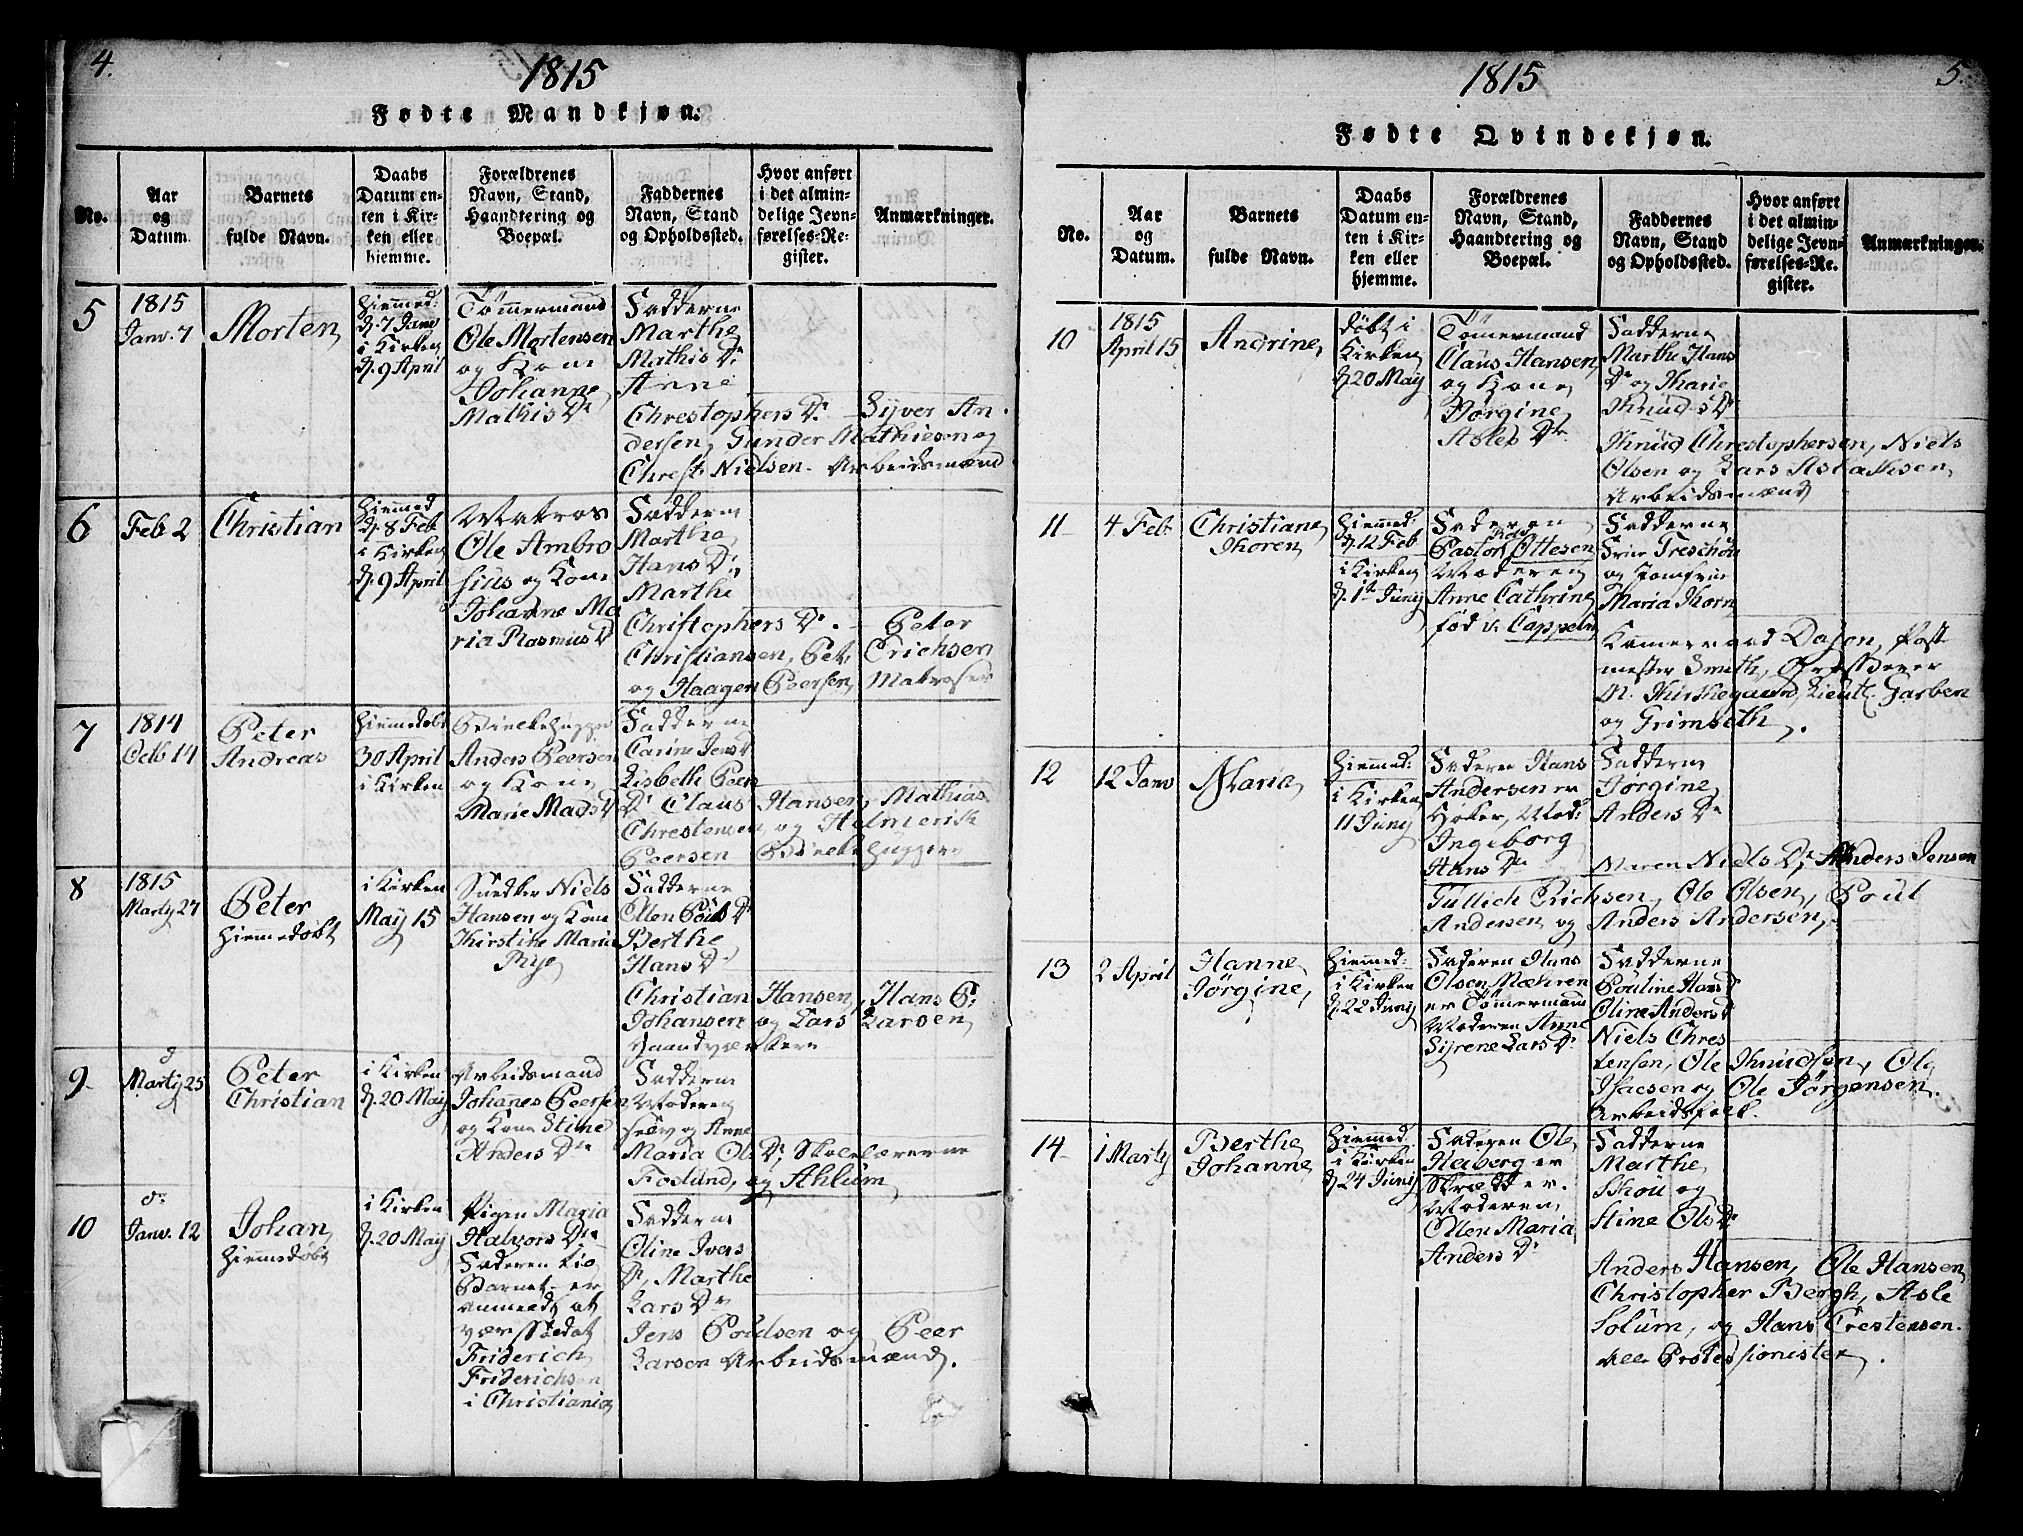 4.
1815
Fødte Mandkjøn.
No.
Aar
og
Datum.
Barnets
fulde Navn.
Daabs
Datum en-
ten i Kir-
ken eller
hjemme.
Forældrenes
Navn, Stand,
Haandtering og
Boepæl.
Faddernes
Navn, Stand
og Opholdssted.
Hvor anført
i det almin-
delige Jevn-
førelses-Re-
gister.
Anmærkninger.
5
1815
Janv. 7
Morten
Hiemmed:
d. 7 Janv
i Kirken
d. 9 April
Tømmermand
Ole Mortensen
og Kone
Johanne
Mathis Dr
Fadderne
Marthe
Mathis Dr
Anne
Chrestophers Dr Syver An-
dersen, Gunder Mathiesen og
Chrest: Nielsen. Arbeidsmænd
6
Feb 2
Christian
Hiemmed
d. 8 Feb
i Kirken
d. 9 April
Matros
Ole Ambro
sius og Kone
Johanne Ma
ria Rasmus Dr
Fadderne
Marthe
Hans Dr
Marthe
Christophers Dr. Peter
Christiansen, Pet: Erichsen
og Haagen Peersen, Matroser
7
1814
Octb 14
Peter
Andreas
Hiemmedøbt
30 April
i Kirken
Anders Peersen
og Kone
Marie Mads Dr
Fadderne
Carine Jens Dr
Lisbeth Peer
Dr Claus Hansen, Mathias
Chrestensen, og Helmerik
Peersen
8
1815
Martij 27
Peter
Hiemmedøbt
i Kirken
May 15
Snedker Niels
Hansen og Kone
Kirstine Maria
Rye
Fadderne
Ellen Pouls Dr
Berthe
Hans Dr
Christian Hansen, Hans P:
Johansen og Lars Larsen,
Haandværkere
9
Martij 25
Peter
Christian
i Kirken
d. 20 May
Arbeidsmand
Johannes Peersen
og Kone Stine
Anders Dr
Fadderne
Moderen
selv og Anne
Maria Ols Dr, Skolelærerne
Foslund, og Ahlum
10
Janv. 12
Johan
Hiemmedøbt
i Kirken
d. 20 May
Pigen Maria
Halvors Dr
Faderen til
Barnet er
anmeldt at
være Soldat
Friderich
Friderichsen
i Christiania
Fadderne
Oline Ivers
Dr, Marthe
Lars Dr
Jens Poulsen og Peer
Larsen Arbeidsmænd.
5.
1815
Fødte Qvindekjøn.
No.
Aar
og
Datum.
Barnets
fulde Navn.
Daabs
Datum en-
ten i Kir-
ken eller
hjemme.
Forældrenes
Navn, Stand,
Haandtering og
Boepæl.
Faddernes
Navn, Stand
og Opholdssted.
Hvor anført
i det almin-
delige Jevn-
førelses-Re-
gister.
Anmærkninger.
10
1815
April 15
Andrine
døbt i
Kirken
d. 20 May
Tømermand
Claus Hansen
og Kone
Jørgine
Asles Dr
Fadderne
Marthe Hans
Dr og Karie
Knuds Dr
Knud Chrestophersen, Niels
Olsen og Lars Aslaksen
Arbeidsmænd
11
4 Feb
Christiane
Thoren
Hiemmed:
d. 12 Feb
i Kirken
d. 1st Juny
Faderen
Pastor Ottesen
Moderen
Anne Cathrine
fød v: Cappeln
Fadderne
Frue Treschou
og Jomfrue
Maria Thorn
Kammerraad Dajon, Post
mester Smith,
N: Kirkegaard, Lieut: Garben
og Grimseth.
12
12 Janv
Maria
Hiemmed:
i Kirken
11 Juny
Faderen Hans
Andersen er
Høker, Mod:
Ingeborg
Hans Dr
Fadderne
Jørgine
Anders Dr
Maren Niels Dr, Anders Jensen
Gullich Erichsen, Ole Olsen, Poul
Andersen og Anders Andersen,
13
2 April
Hanne
Jørgine
Hiemmed:
i Kirken
d. 22 Junij
Faderen Hans
Olsen Mæhren
er Tømermand
Moderen Anne
Syrene Lars Dr
Fadderne
Pouline Hans Dr
Oline Anders Dr
Niels Chres
tensen, Ole Knudsen, Ole
Isacsen og Ole Jørgensen.
Arbeidsfolk.
14
1 Martij
Berthe
Johanne
Hiemmed.
i Kirken
d. 24 Junij
Faderen Ole
Heiberg er
Skrædder.
Moderen
Ellen Maria
Anders Dr
Fadderne
Marthe
Skou og
Stine Ols Dr
Anders Hansen, Ole Hansen
Christopher Bergh, Asle
Solum, og Hans Crestensen.
Alle Professionister.